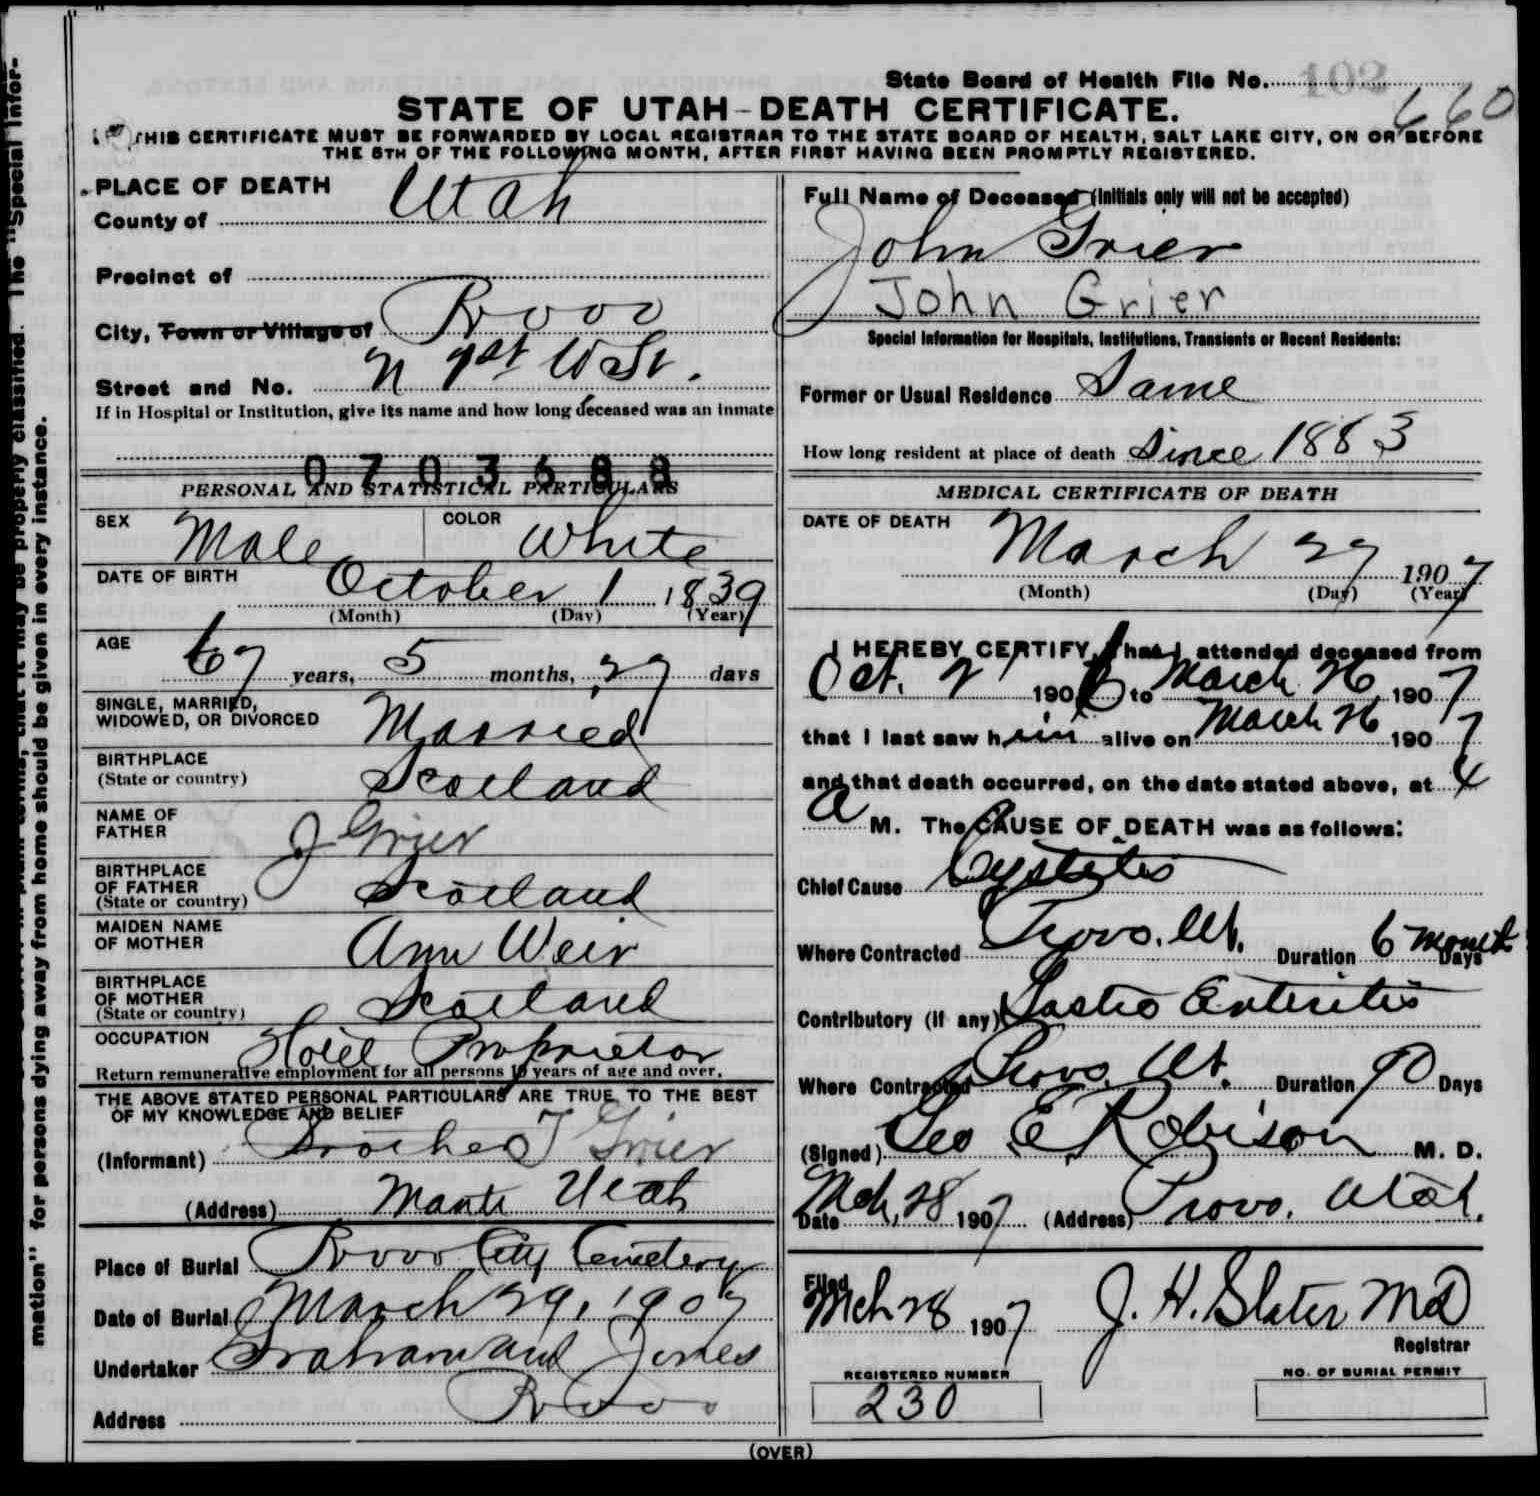 State Board of Health File No. 102
660
STATE OF UTAH-DEATH CERTIFICATE.
THIS CERTIFICATE MUST BE FORWARDED BY LOCAL REGISTRAR TO THE STATE BOARD OF HEALTH, SALT LAKE CITY, ON OR BEFORE
THE 5TH OF THE FOLLOWING MONTH, AFTER FIRST HAVING BEEN PROMPTLY REGISTERED.
PLACE OF DEATH
County of Utah
Precinct of
City, Town or Village of Provo
Street and No. N 1st W St.
If in Hospital or Institution, give its name and how long deceased was an inmate
0703588
PERSONAL AND STATISTICAL PARTICULARS
SEX Male COLOR White
DATE OF BIRTH October 1 1839
(Month) (Day) (Year)
AGE 67 years, 5 months, 27 days
SINGLE, MARRIED,
WIDOWED, OR DIVORCED Married
BIRTHPLACE
(State or country) Scotland
NAME OF
FATHER J Grier
BIRTHPLACE
OF FATHER
(State or country) Scotland
MAIDEN NAME
OF MOTHER Ann Weir
BIRTHPLACE
OF MOTHER
(State or country) Scotland
OCCUPATION Hotel Proprietor
Return remunerative employment for all persons 10 years of age and over.
THE ABOVE STATED PERSONAL PARTICULARS ARE TRUE TO THE BEST
OF MY KNOWLEDGE AND BELIEF
(Informant) Brother T Grier
(Address) Manti Utah
Place of Burial Provo City Cemetery
Date of Burial March 29, 1907
Undertaker Graham and Jones
Address Provo
Full Name of Deceased (Initials only will not be accepted)
John Grier
John Grier
Special Information for Hospitals, Institutions, Transients or Recent Residents:
Former or Usual Residence Same
How long resident at place of death Since 1883
MEDICAL CERTIFICATE OF DEATH
DATE OF DEATH March 27 1907
(Month) (Day) (Year)
I HEREBY CERTIFY, that I attended deceased from
Oct. 2 1906 to March 26 1907
that I last saw him alive on March 26 1907
and that death occurred, on the date stated above, at 4
a M. The CAUSE OF DEATH was as follows:
Chief Cause Cystitis
Where Contracted Provo. Ut. Duration 6 months Days
Contributory (if any) Gastro Enteritis
Where Contracted Provo Ut. Duration 90 Days
(Signed) Geo E Robison M. D.
Date Mch, 28 1907 (Address) Provo. Utah.
Filed
Mch 28 1907 J. H. Slater MD
Registrar
REGISTERED NUMBER
230
NO. OF BURIAL PERMIT
(OVER)
mation" for persons dying away from home should be given in every instance.
that it may be properly classified. The "Special Infor-